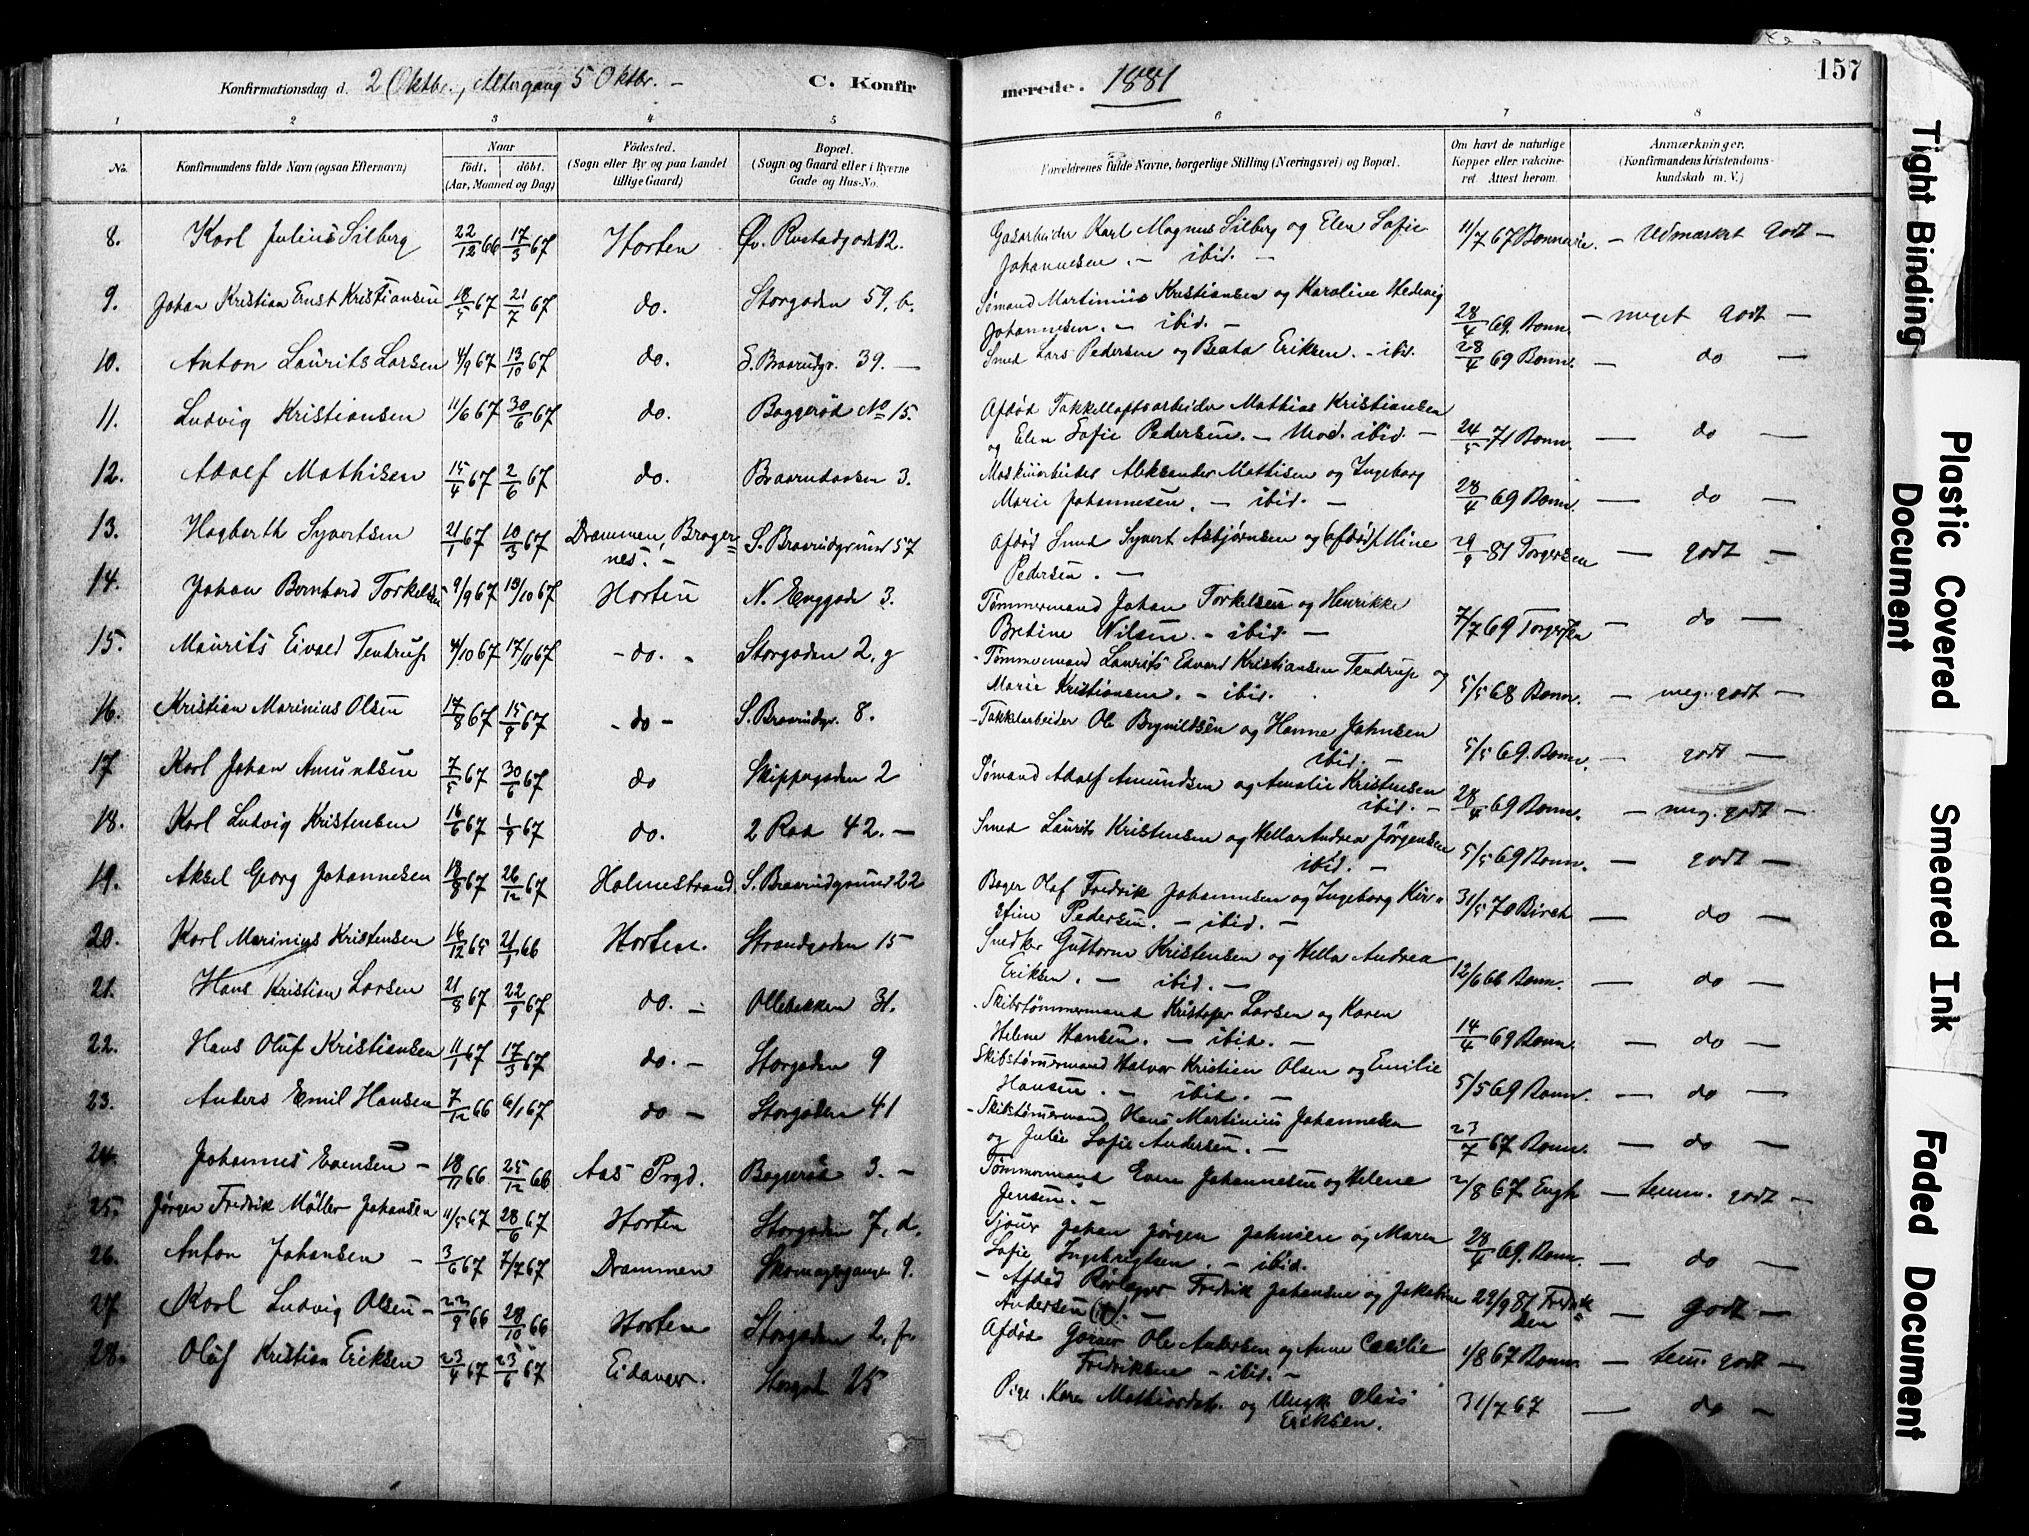 157
Konfirmationsdag d. 2 Oktbr., Altergang 5 Oktbr. – C. Konfirmerede. 1881
1 2 3 4 5 6 7 8
No. Konfirmandens fulde Navn (ogsaa Efternavn) Naar födt. döbt. (Aar, Maaned og Dag) Födested. (Sogn eller By og paa Landet tillige Gaard) Bopæl. (Sogn og Gaard eller i Byerne Gade og Hus-No. Forældrenes fulde Navne, borgerlige Stilling (Næringsvei) og Bopæl. Om havt de naturlige Kopper eller vakcineret. Attest herom. Anmærkninger. (Konfirmandens Kristendomskundskab m. V.)
8. Karl Julius Silberg 22/12 66 17/3 67 Horten Øv. Rustadgade 12. Gasarbeider Karl Magnus Silberg og Elen Sofie 11/7 67 Bonnevie. – Udmærket godt –
Johannesen. – ibid. –
9. Johan Kristian Ernst Kristiansen 18/5 67 21/7 67 do. Storgaden 59, b. Sømand Martinius Kristiansen og Karoline Hedevig
Johannesen. – ibid. – 28/4 69. Bonn. – meget godt –
10. Anton Laurits Larsen 4/9 67 13/10 67 do. S. Braarudgr. 39. – Smed Lars Pedersen og Beata Eriksen. – ibid. 28/4 69 Bonn. – do –
11. Ludvig Kristiansen 11/6 67 30/6 67 do. Baggerød No 15. Afdød Takkelloftsarbeider Mathias Kristiansen
og Elen Sofie Pedersen. – ibid. – 24/5 71 Bonn. – do –
12. Adolf Mathisen 15/4 67 2/6 67 do. Braarudaasen 3. Maskinarbeider Aleksander Mathisen og Ingeborg
Marie Johannesen. – ibid. – 28/4 69 Bonn. – do –
13. Hagbarth Syvertsen 21/1 67 10/3 67 Drammen, Bragernes. – S. Braarudgrund 57 Afdød Smed Syvert Asbjørnsen og (afdød) Mine
Pedersen. – 29/9 81 Torgersen – godt –
14. Johan Bernhard Torkelsen 9/9 67 13/10 67 Horten N. Enggade 3. Tømmermand Johan Torkelsen og Henrikke
Bretine Nilsen. – ibid. – 7/7 69 Torgersen – do –
15. Maurits Eivald Tentrup 4/10 67 17/11 67 – do. – Storgaden 2, g – Tømmermand Laurits Edvard Kristiansen Tendrup og
Marie Kristiansen. – ibid. 5/5 68 Bonn. – meg. godt –
16. Kristian Marinius Olsen 17/8 67 15/9 67 – do – S. Braarudgr. 8. – Takkelarbeider Ole Brynildsen og Hanne Jahnsen
ibid. – 5/5 69. Bonn. – godt –
17 Karl Johan Amundsen 7/5 67 30/6 67 do Skippergaden 2 Sømand Adolf Amundsen og Amalie Kristensen
ibid. – 28/4 69 Bonn. – meg. godt –
18. Karl Ludvig Kristensen 16/6 67 1/9 67 do. 2 Rad 42. – Smed Laurits Kristensen og Hella Andrea Jørgensen
ibid. – 5/5 69 Bonn. – godt –
19. Aksel Georg Johannesen 18/8 67 26/12 67 Holmestrand. S. Braarudgrund 22 Bager Olaf Fredrik Johannesen og Ingeborg Kir-
stine Pedersen. – ibid. – 31/5 70 Birch – do –
20. Karl Marinius Kristensen 16/12 65 21/1 66 Horten. Strandgaden 15 Snedker Guttorm Kristensen og Hella Andrea
Eriksen. – ibid. – 12/6 66 Bonn. – do –
21. Hans Kristian Larsen 21/8 67 22/9 67 do. – Ollebakken 31. – Skibstømmermand Kristofer Larsen og Karen
Helene Hansen. – ibid. – 14/4 69 Bonn. – do –
22. Hans Oluf Kristiansen 11/1 67 17/3 67 do. – Storgaden 9 Skibstømmermand Halvor Kristian Olsen og Emilie
Hansen. – ibid. – 5/5 69 Bonn. – do –
23. Anders Emil Hansen 7/12 66 6/1 67 do – Storgaden 41 – Skibstømmermand Hans Martinius Johannesen
og Julie Sofie Andersen. – 23/7 67 Bonn. – do –
24. Johannes Evensen – 18/11 66 25/12 66 Aas Prgd. Baggerød 3. – Tømmermand Even Johannesen og Helene
Jensen. – 2/8 67 Engh – temm. godt –
25. Jørgen Fredrik Møller Johansen 11/5 67 28/6 67 Horten Storgaden 7, d. Sjouer Johan Jørgen Johnsen og Maren
Sofie Ingebrigtsen. – ibid. 28/4 69. Bonn. – do –
26. Anton Johansen – 3/6 67 7/7 67 Drammen Skomagergangen 9. – Afdød Fredrik Johansen og Jakobine
Andersen (†). – 29/9 81 Fredriksen – godt –
27 Karl Ludvig Olsen – 22/9 66 28/10 66 Horten Storgaden 2, f. Afdød Ole Andersen og Anne Cecilie
Fredriksen – ibid. – 1/8 67 Bonn. – tem. godt –
28. Oluf Kristian Eriksen 23/4 67 23/6 67 Eidanger. Storgad 25 Pige Karen Mathisdat. og Ungk. Olaus
Eriksen. 31/7 67 – do –
Tight Binding
Plastic Covered Document
Smeared Ink
Faded Document